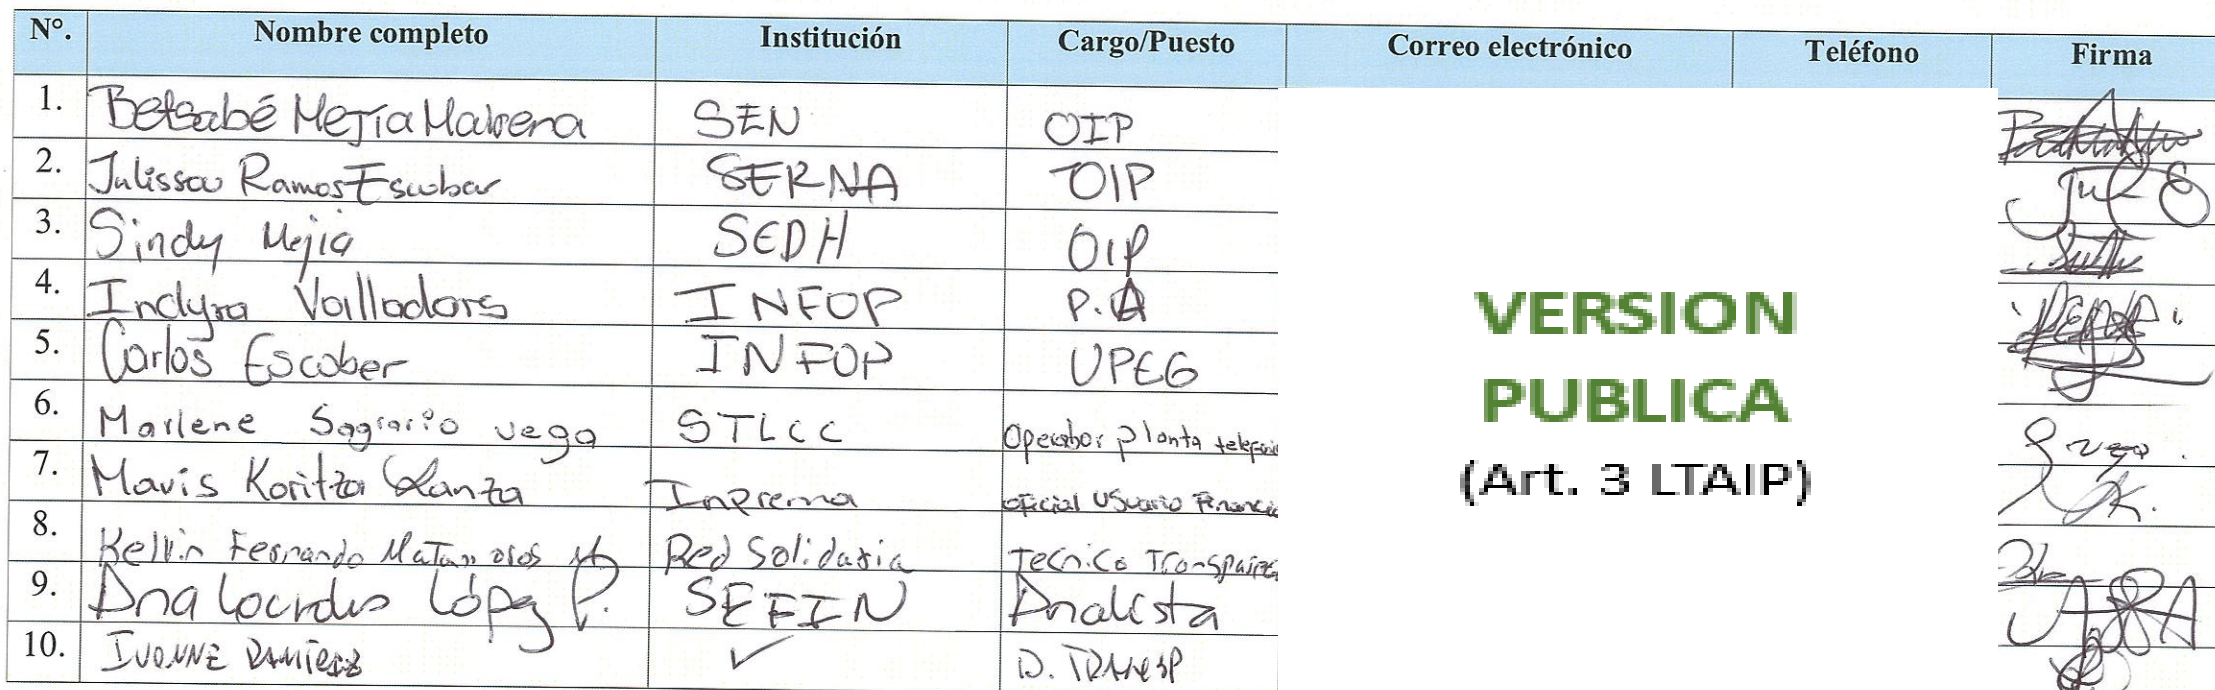 N°. Nombre completo Institución Cargo/Puesto Correo electrónico Teléfono Firma
1. Betsabé Mejía Mairena SEN OIP
2. Julissa Ramos Escobar SERNA OIP
3. Sindy Mejia SEDH OIP
4. Indyra Valladars INFOP P.A
5. Carlos Escober INFOP UPEG
6. Marlene Sagrario vega STLCC Operador planta
7. Mavis Koritza Lanza Inprema oficial Usuario
8. Kelvin Fernando Matamoros M Red Solidaria Tecnico
9. Ana Lourdes López P. SEFIN Analista
10. IVONNE RAMIREZ ✓ D. TRANSP
VERSION
PUBLICA
(Art. 3 LTAIP)